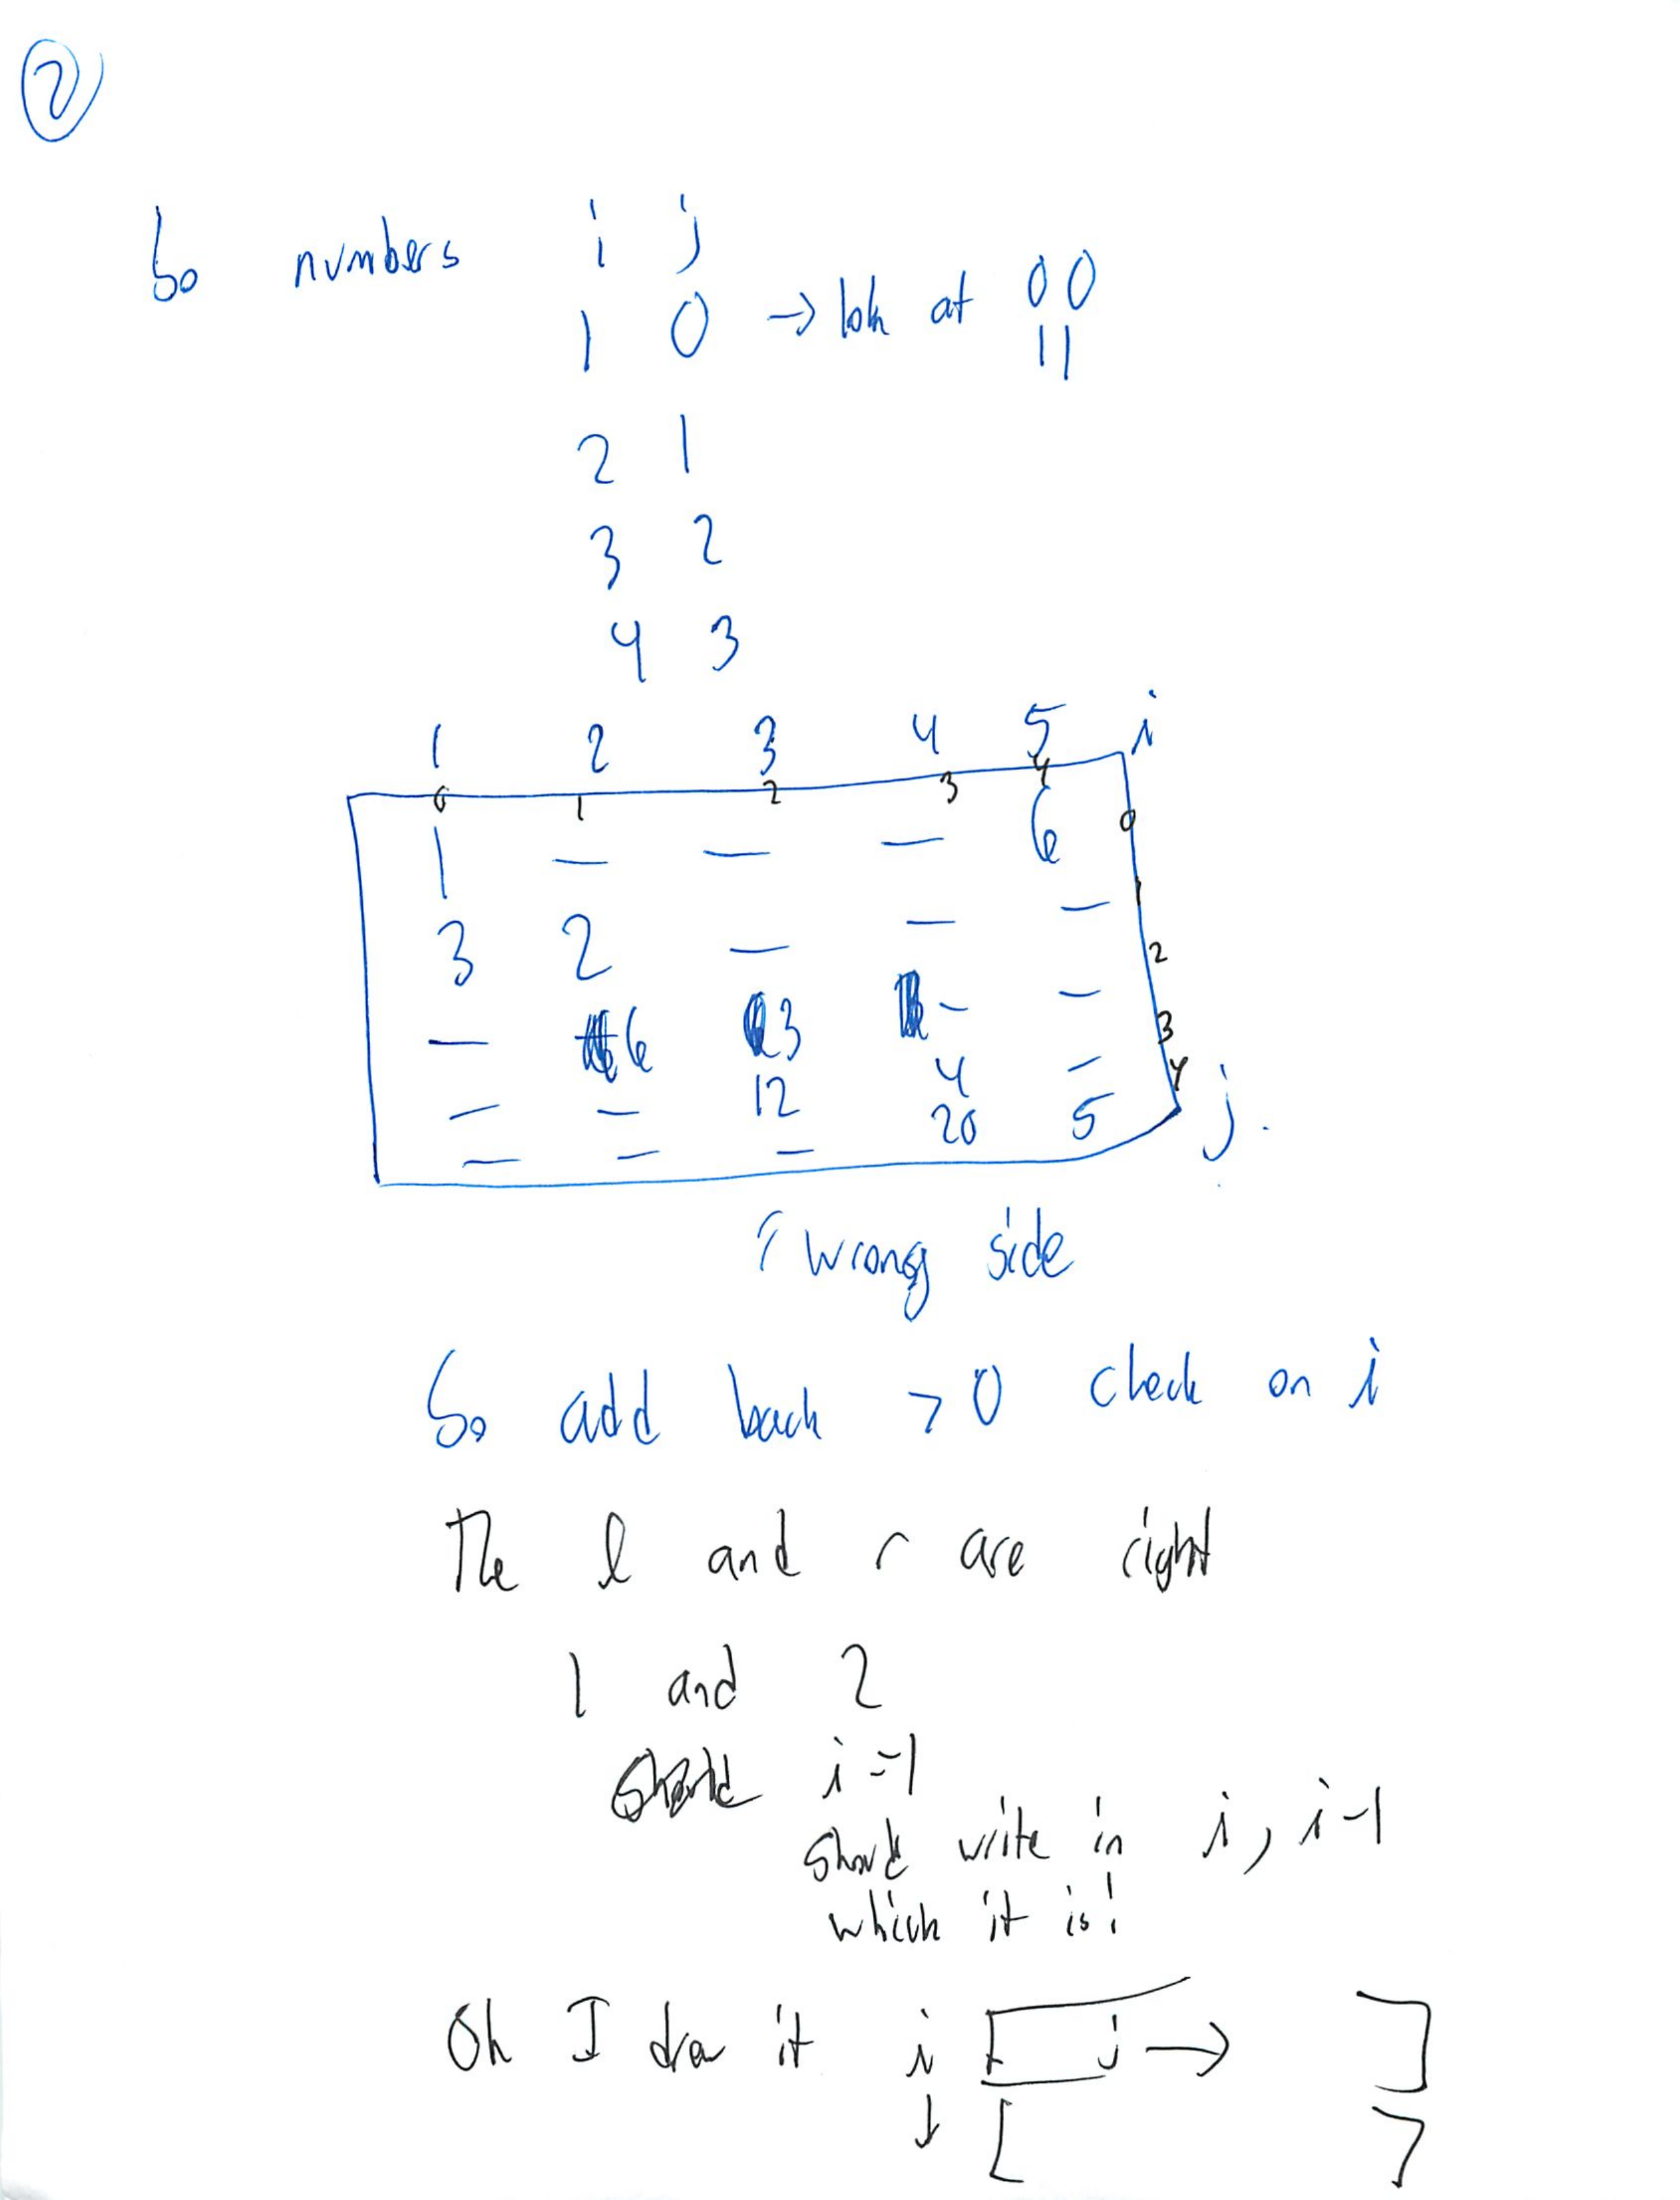 2
So numbers i j
1 0 → look at 00
11
2 1
3 2
4 3
1 2 3 4 5 i
0 1 2 3 4
1 — — — 6 0
3 2 — — — 1
— 6 3 - — 2
— — 12 4 — 3
— — — 20 5 4 j.
↑ wrong side
So add back >0 check on i
The l and r are right
1 and 2
i-1
should write in i, i-1
which it is!
Oh I drew it i [ j → ]
↓ [ ]